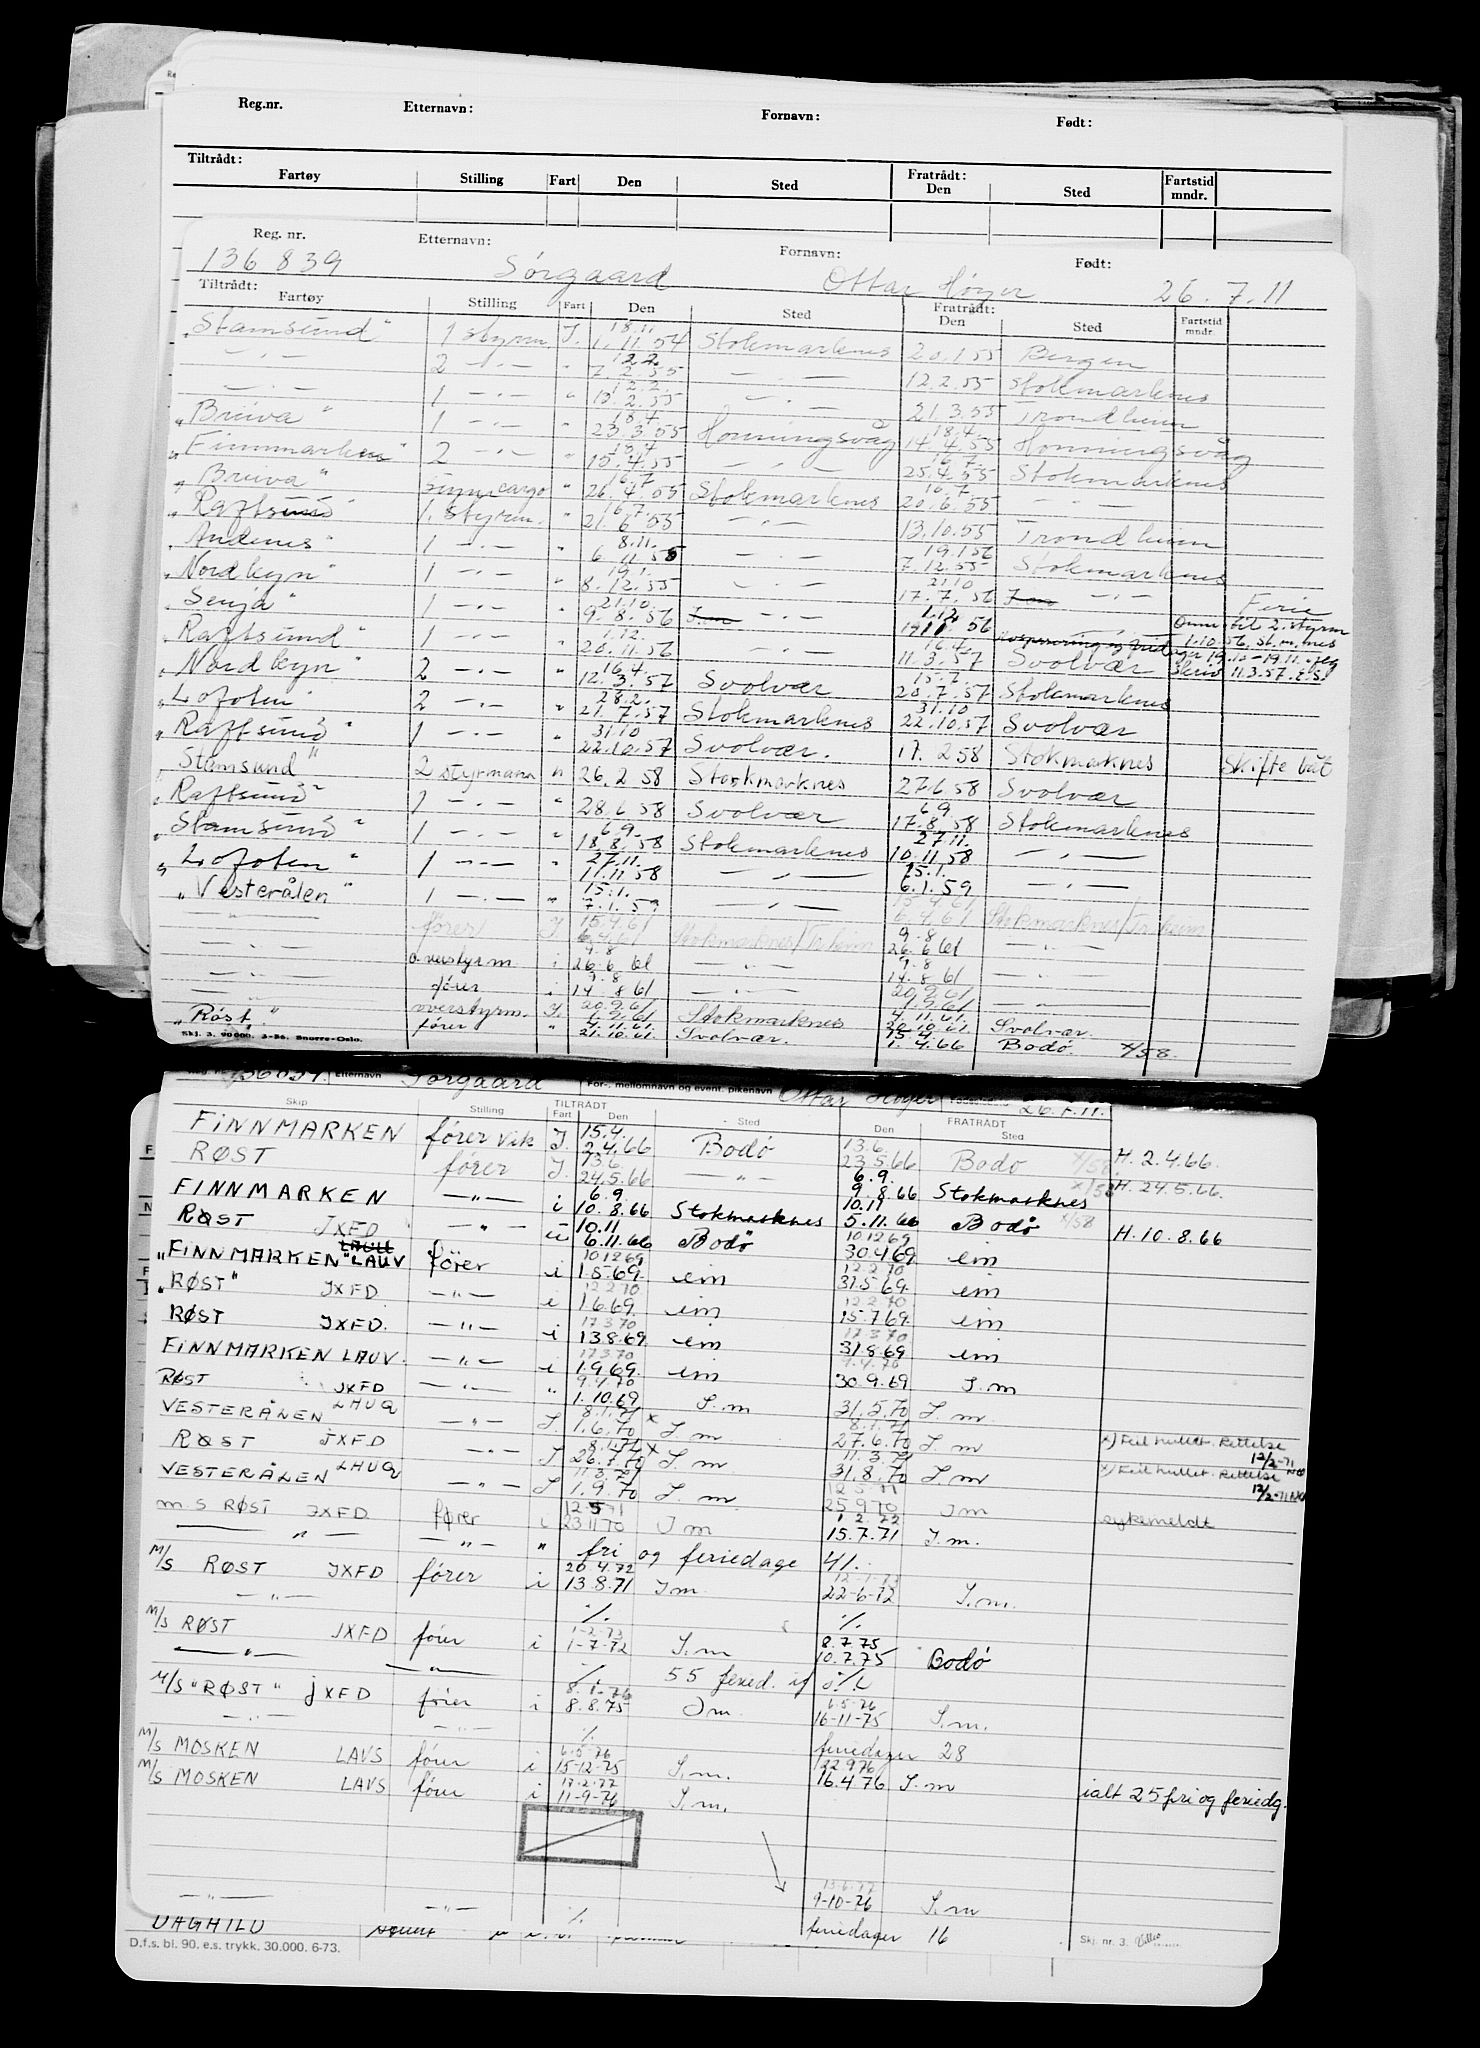 Reg.nr. Etternavn: Fornavn: Født:
Tiltrådt: Fratrådt:
Fartøy Stilling Fart Den Sted Den Sted Fartstid mndr.
Reg. nr. Etternavn: Fornavn: Født:
136 839 Sørgaard Ottar Høyer 26.7.11
Tiltrådt: Fratrådt:
Fartøy Stilling Fart Den Sted Den Sted Fartstid mndr.
"Stamsund" 1 styrm. I. 18.11. 1.11.54 Stokmarknes 20.1.55 Bergen
—"— 2 —"— " 12.2. 7.2.55 —"— 12.2.55 Stokmarknes
—"— 1 —"— " 12.2. 13.2.55 —"— 21.3.55 Trondheim
"Breiva" 1 —"— " 18.4. 23.3.55 Honningsvåg 18.4. 14.4.55 Honningsvåg
"Finnmarken" 2 —"— " 18.4. 15.4.55 —"— 16.7. 25.4.55 Stokmarknes
"Breiva" cargo " 16.7. 26.4.55 Stokmarknes 16.7. 20.6.55 —"—
"Raftsund" 1. styrm. " 16.7. 21.6.55 —"— 13.10.55 Trondheim
"Andenes" 1 —"— " 8.11. 6.11.55 —"— 19.1.56 7.12.55 Stokmarknes
"Nordkyn" 1 —"— " 19.1. 8.12.55 —"— 21.10 17.7.56 I.m —"— Ferie
"Senja" 1 —"— " 21.10. 9.8.56 I.m —"— 1.12. 19.11.56
"Raftsund" 1 —"— " 1.12. 20.11.56 —"— 16.4. 11.3.57 Svolvær
"Nordkyn" 2 —"— " 16.4. 12.3.57 Svolvær 15.7. 20.7.57 Stokmarknes
"Lofoten" 2 —"— " 28.2. 21.7.57 Stokmarknes 31.10 22.10.57 Svolvær
"Raftsund" 1 —"— " 31.10 22.10.57 Svolvær. 17.2.58 Stokmarknes Skifte båt
"Stamsund" 2 styrmann " 26.2.58 Stokmarknes 27.6.58 Svolvær
"Raftsund" 1 —"— " 28.6.58 Svolvær 6.9 17.8.58 Stokmarknes
"Stamsund" 1 —"— " 6.9. 18.8.58 Stokmarknes 27.11. 10.11.58 —"—
"Lofoten" 1 —"— " 27.11. 11.11.58 —"— 15.1. 6.1.59 —"—
"Vesterålen" 1 —"— " 15.1. 7.1.59 —"— 15.4.61 6.4.61 Stokmarknes/Tr.heim
—"— fører I 15.4.61 6.4.61 Stokmarknes/Tr.heim 9.8 26.6.61 —"—
—"— overstyrm. i 9.8 26.6.61 —"— 9.8 14.8.61 —"—
—"— fører i 9.8 14.8.61 —"— 20.9.61 1.9.61 —"—
—"— overstyrm. I. 20.9.61 1.9.61 Stokmarknes 4.11.61. 20.10.61. Svolvær.
"Røst" fører " 4.11.61. 21.10.61. Svolvær. 15.4. 1.4.66 Bodø. x/58.
Skj. 3. 90 000. 3-56. Snorre-Oslo.
136839. Etternavn Sørgaard For-, mellomnavn og event. pikenavn Ottar Høyer 26.7.11.
TILTRÅDT FRATRÅDT
Skip Stilling Fart Den Sted Den Sted
FINNMARKEN fører vik I. 15.4. 2.4.66 Bodø 13.6. 23.5.66 Bodø x/58 H. 2.4.66.
RØST fører I. 13.6. 24.5.66 —"— 6.9. 9.8.66 Stokmarknes x/58 H. 24.5.66.
FINNMARKEN —"— i 6.9. 10.8.66 Stokmarknes 10.11 5.11.66 Bodø x/58 H. 10.8.66
RØST JXFD —"— i 10.11 6.11.66 Bodø 10.12.69 30.4.69 im
"FINNMARKEN" LAUV fører i 10.12.69 1.5.69. im 12.2.70 31.5.69. im
"RØST" JXFD —"— i 12.2.70 1.6.69. im 12.2.70 15.7.69 im
RØST JXFD. —"— i 17.3.70 13.8.69. im 17.3.70 31.8.69 im
FINNMARKEN LAUV. —"— i 17.3.70 1.9.69. im 9.4.70 30.9.69 I.m
RØST JXFD —"— " 9.4.70 1.10.69 I.m 31.5.70 I.m
VESTERÅLEN LHUQ —"— I. 8.1.71 x 1.6.70 I.m 8.1.71 27.6.70 I.m x) Feil hullet. Rettelse 12/2-71
RØST JXFD —"— I 8.1.71 x 26.7.70 I.m 11.3.71 31.8.70 I.m x) Feil hullet. Rettelse 12/2-71
VESTERÅLEN LHUQ —"— I 11.3.71 1.9.70 I.m 12.5.71 25.9.70 Im sykemeldt
m.s RØST JXFD fører i 12.5.71 23.11.70 Im 1.2.72 15.7.71 I.m.
—"— —"— " fri og feriedage 41.
M/S RØST JXFD fører i 20.4.72 13.8.71 Im 22-6-72 I.m.
—"— %. %.
M/S RØST JXFD fører i 1-2-73 1-7-72 I.m 8.7.75 10.7.75 Bodø
—"— —"— %. 55 feried.
M/S "RØST" JXFD fører i 8.1.76 8.8.75 Im 6.5.76 16-11-75 I.m.
—"— —"— %. feriedager 28
M/S MOSKEN LAVS fører i 6.5.76 15-12-75 I.m. 22.9.76 16.4.76 I.m
M/S MOSKEN LAVS fører i 17.2.77 11-9-76 I.m. ialt 25 fri og feriedg.
9-10-76 I.m
—"— —"— %. feriedager 16
DAGHILD
D.f.s. bl. 90. e.s. trykk. 30.000. 6-73. Skj. nr. 3.